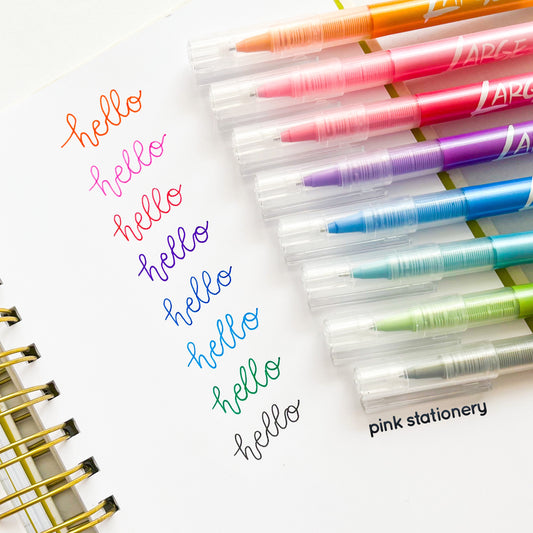 hello
hello
hello
hello
hello
hello
hello
hello
LARGE
LARGE
pink stationery